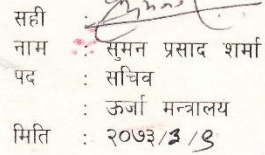 सही :
नाम : सुमन प्रसाद शर्मा
पद : सचिव
: ऊर्जा मन्त्रालय
मिति : २०७३/३/९